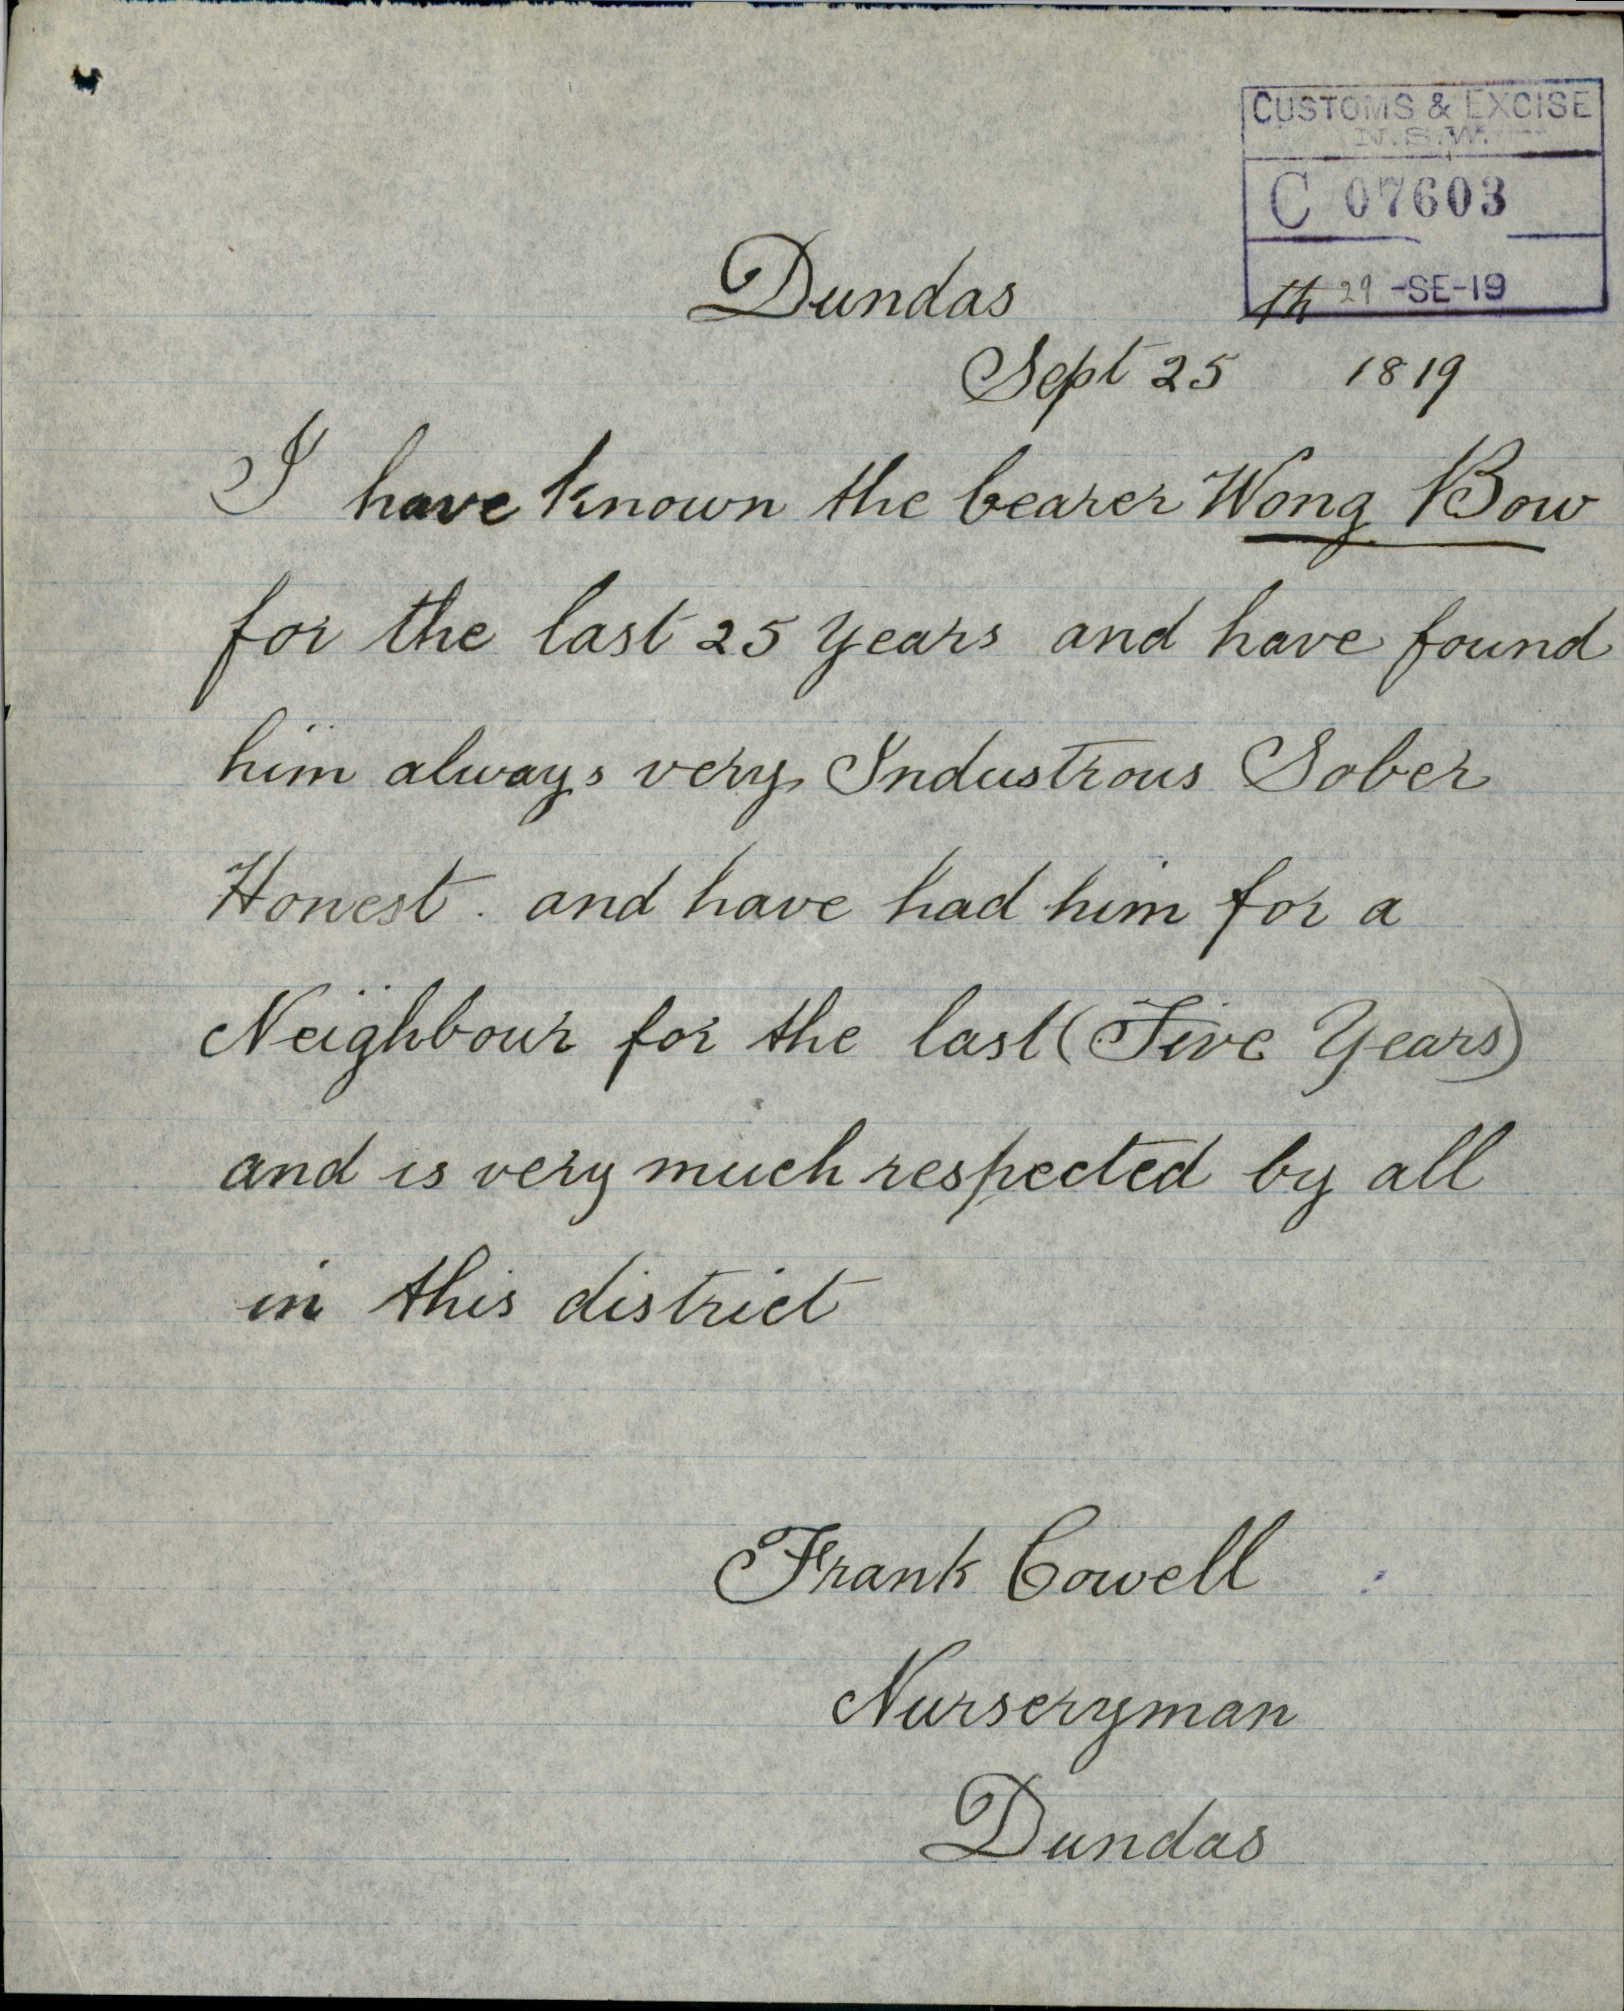 CUSTOMS & EXCISE
N.S.W.
C 07603
29 -SE-19
Dundas
Sept 25th 1819
I have known the bearer Wong Bow
for the last 25 years and have found
him always very Industrous Sober
Honest. and have had him for a
Neighbour for the last (Five Years)
and is very much respected by all
in this district
Frank Cowell
Nurseryman
Dundas